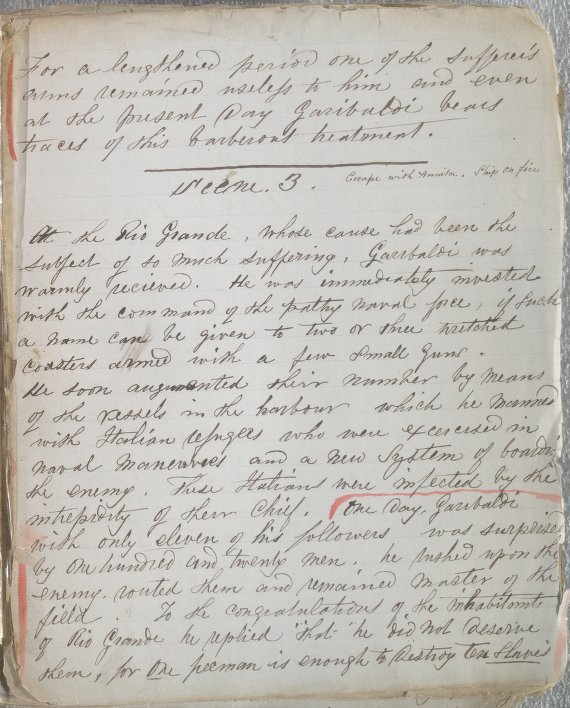 For a lengthened period one of the sufferer's
arms remained useless to him and even
at the present Day Garibaldi bears
traces of this barberous treatment.
Scene. 3.
Escape with Annita. Ship on fire
At the Rio Grande, whose cause had been the
subject of so much suffering, Garibaldi was
warmly recieved. He was immediately invested
with the command of the pathy naval force, if such
a name can be given to two or three wretched
coasters armed with a few small guns.
He soon augmented their number by means
of the vessels in the harbour which he manned
with Italian refugees who were excercised in
naval maneuvres and a new system of boarding
the enemy. These Italians were infected by the
intrepidity of their Chief. One day, Garibaldi
with only eleven of his followers was surprised
by one hundred and twenty men, he rushed upon the
enemy, routed them and remained master of the
field. To the congratulations of the inhabitants
of Rio Grande he replied that he did not deserve
them, for One freeman is enough to Destroy ten Slaves